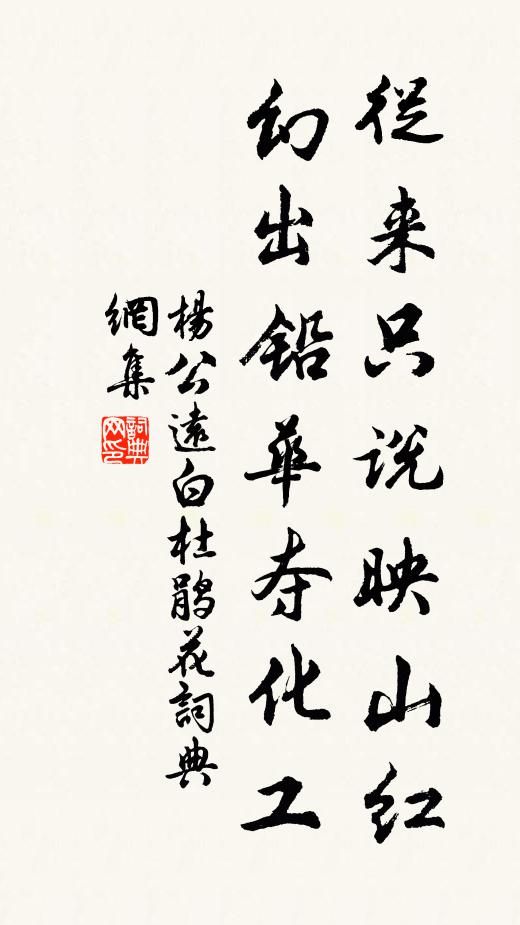 従来只说映山红
幻出铅華夺化工
楊公遠白杜鹃花詞典
網集
詞典网印